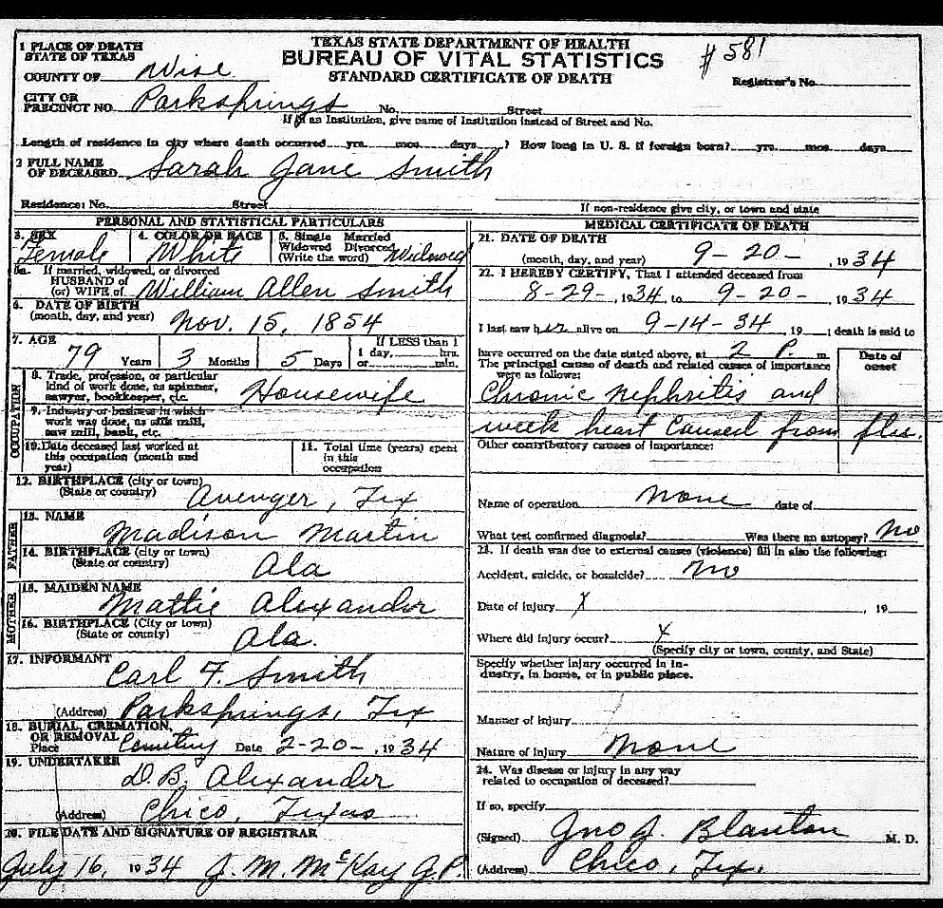 TEXAS STATE DEPARTMENT OF HEALTH
BUREAU OF VITAL STATISTICS
STANDARD CERTIFICATE OF DEATH
# 581
Registrar's No.
1 PLACE OF DEATH
STATE OF TEXAS
COUNTY OF Wise
CITY OR
PRECINCT NO. Parksprings No. Street
If in an Institution, give name of Institution instead of Street and No.
Length of residence in city where death occurred yrs. mos. days ? How long in U. S. if foreign born? yrs. mos. days
2 FULL NAME
OF DECEASED Sarah Jane Smith
Residence: No. Street
If non-residence give city, or town and state
PERSONAL AND STATISTICAL PARTICULARS
3. SEX 4. COLOR OR RACE 5. Single Married
Widowed Divorced
(Write the word) Widowed
Female White
5a. If married, widowed, or divorced
HUSBAND of
(or) WIFE of William Allen Smith
6. DATE OF BIRTH
(month, day, and year) Nov. 15, 1854
7. AGE If LESS than 1
79 Years 3 Months 5 Days 1 day, hrs.
or min.
OCCUPATION
8. Trade, profession, or particular
kind of work done, as spinner,
sawyer, bookkeeper, etc. Housewife
9. Industry or business in which
work was done, as silk mill,
saw mill, bank, etc.
10. Date deceased last worked at
this occupation (month and
year)
11. Total time (years) spent
in this
occupation
12. BIRTHPLACE (city or town)
(State or country) Avenger, Tex
FATHER
13. NAME
Madison Martin
14. BIRTHPLACE (city or town)
(State or country) Ala
MOTHER
15. MAIDEN NAME
Mattie Alexander
16. BIRTHPLACE (City or town)
(State or county) Ala.
17. INFORMANT
Carl F. Smith
(Address) Parksprings, Tex
18. BURIAL, CREMATION,
OR REMOVAL
Place Cemetery Date 2-20-, 1934
19. UNDERTAKER
D.B. Alexander
(Address) Chico, Texas
20. FILE DATE AND SIGNATURE OF REGISTRAR
July 16, 1934 J. M. McKay J.P.
MEDICAL CERTIFICATE OF DEATH
21. DATE OF DEATH
(month, day, and year) 9-20-, 1934
22. I HEREBY CERTIFY, That I attended deceased from
8-29-, 1934 to 9-20-, 1934
I last saw her alive on 9-14-34, 19 ; death is said to
have occurred on the date stated above, at 2 P. m.
The principal cause of death and related causes of importance
were as follows:
Date of
onset
Chronic Nephritis and
week heart caused from flu.
Other contributory causes of importance:
Name of operation none date of
What test confirmed diagnosis? Was there an autopsy? No
23. If death was due to external causes (violence) fill in also the following:
Accident, suicide, or homicide? no
Date of injury X , 19
Where did injury occur? X
(Specify city or town, county, and State)
Specify whether injury occurred in in-
dustry, in home, or in public place.
Manner of injury
Nature of injury none
24. Was disease or injury in any way
related to occupation of deceased?
If so, specify
(Signed) Jno J. Blanton M. D.
(Address) Chico, Tex.